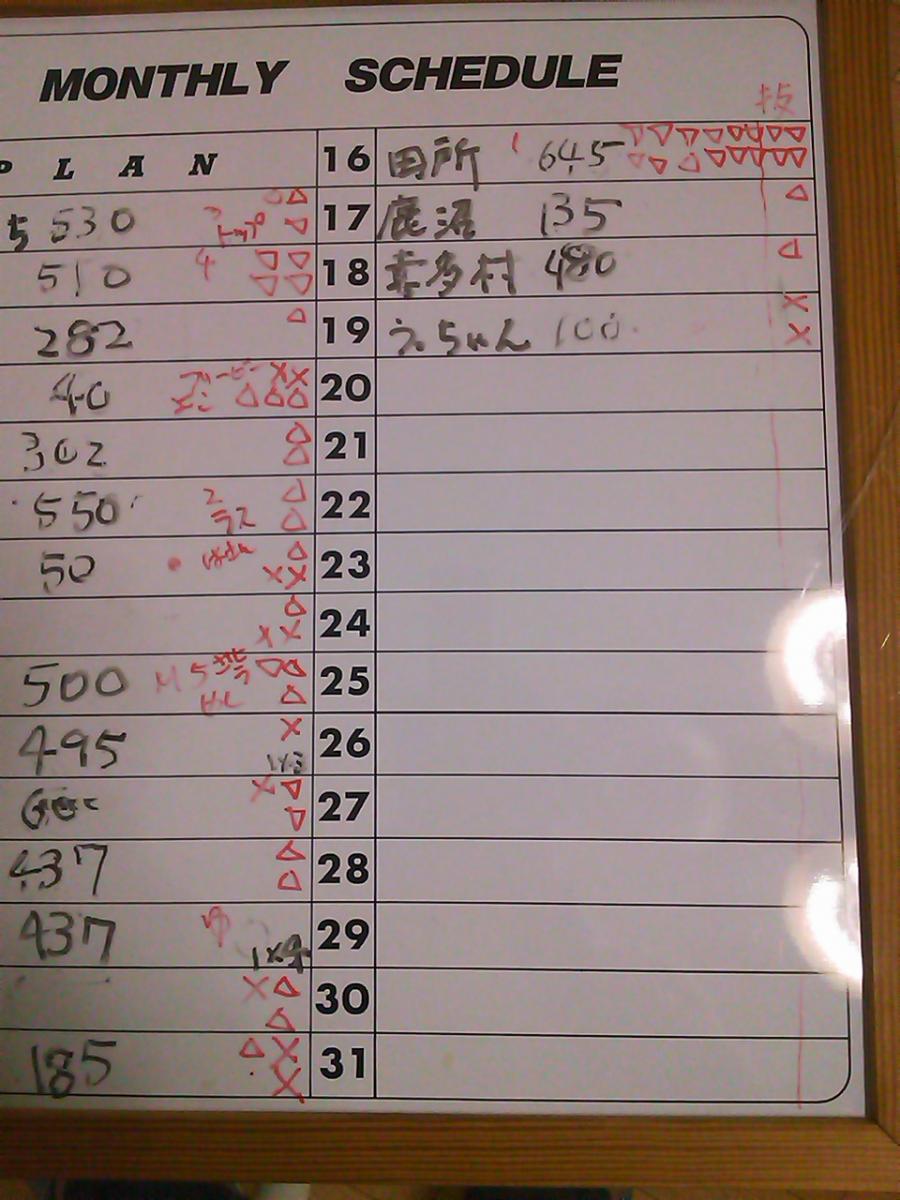 MONTHLY SCHEDULE
技
P L A N
16 田所 645
ち 530 3 トップ 17 鹿沼 135
510 4 18 喜多村 480
282 19 うっちゃん 100
40 20
302 21
550 2 ラス 22
50 23
24
500 M 5 25
495 1×3 26
27
437 28
437 1×4 29
30
185 31